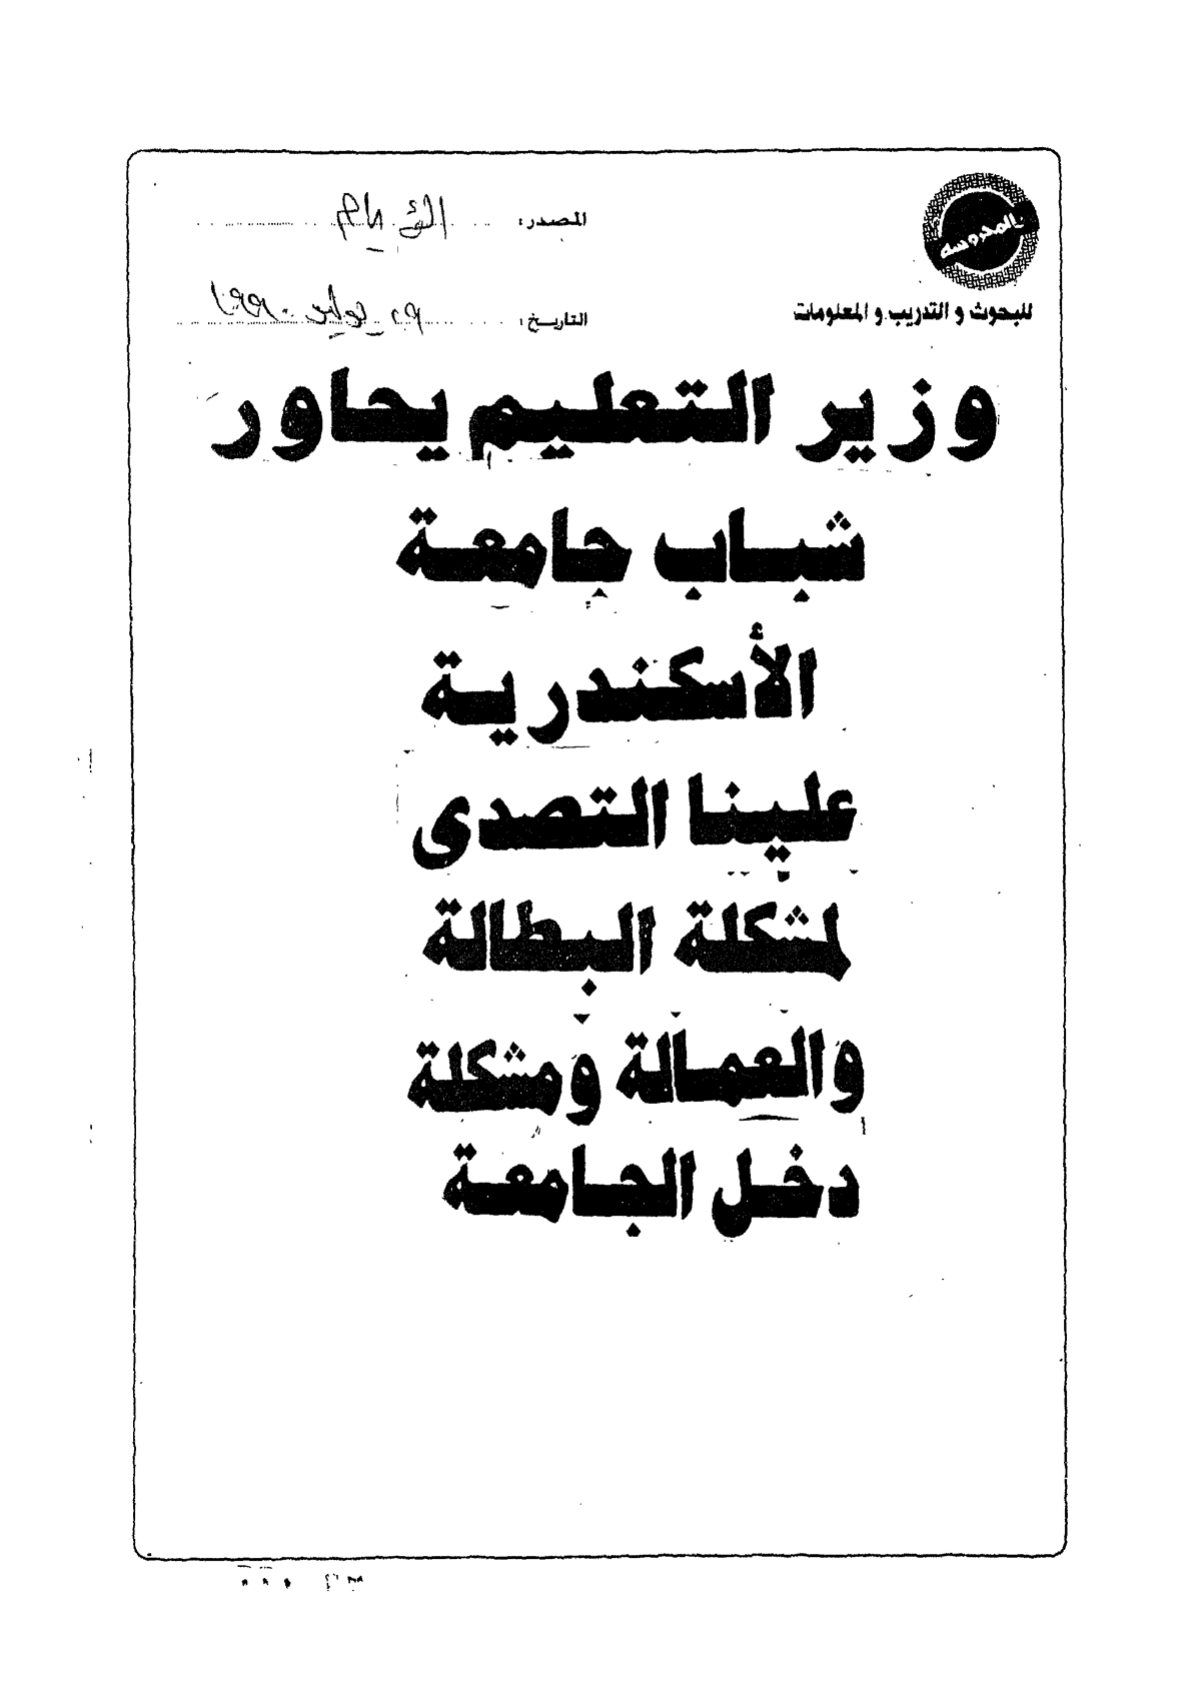 المحروسة
للبحوث و التدريب و المعلومات
المصدر:
التاريخ: ٢٩ يوليو ١٩٩٠
وزير التعليم يحاور
شباب جامعة
الأسكندرية
علينا التصدى
لمشكلة البطالة
والعمالة ومشكلة
دخل الجامعة